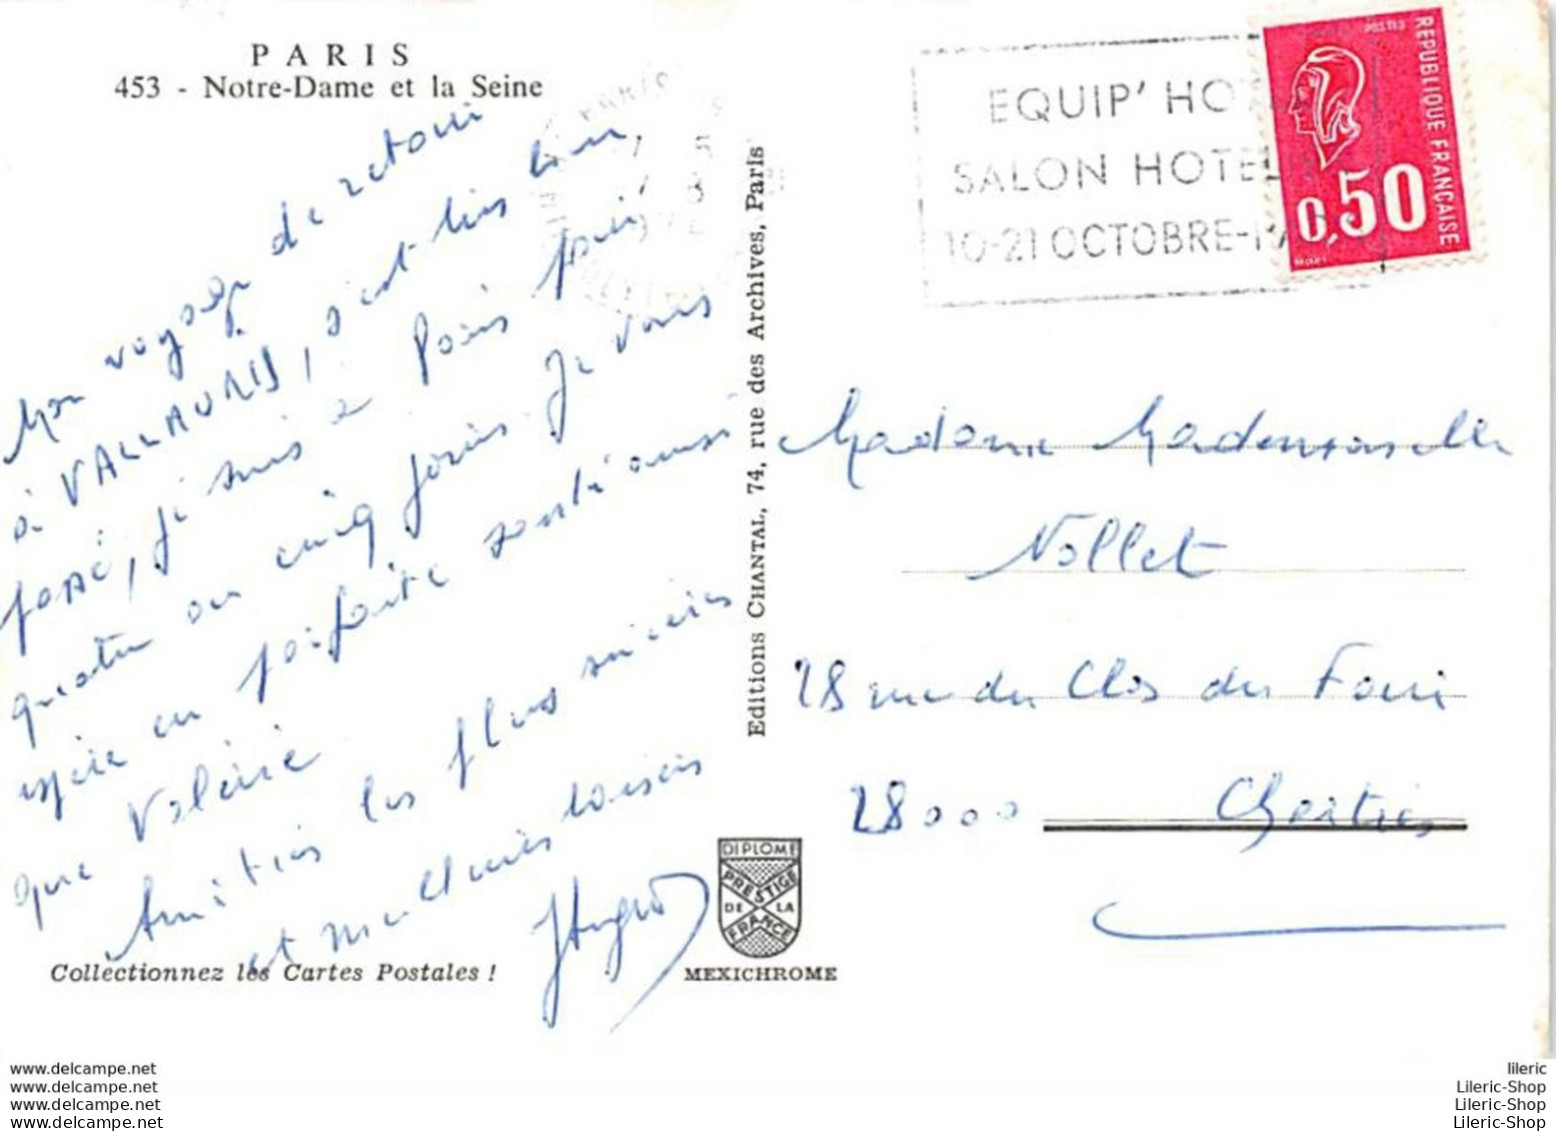 PARIS
453 - Notre-Dame et la Seine
Mon voyage de retour
à VALLAURIS, s'est bien
passé, je suis à Paris pour
quatre ou cinq jours. Je vous
espère en parfaite santé ainsi
que Valérie
Amitiés les plus sincères
et meilleurs baisers
Collectionnez les Cartes Postales !
Editions CHANTAL, 74, rue des Archives, Paris
DIPLOME
PRESTIGE
DE LA
FRANCE
MEXICHROME
PARIS
EQUIP' HO
SALON HOTEL
10-21 OCTOBRE-1
POSTES
REPUBLIQUE FRANÇAISE
0,50
Madame Mademoiselle
Nollet
28 rue du Clos du Four
28000 Chartres
www.delcampe.net
www.delcampe.net
www.delcampe.net
www.delcampe.net
lileric
Lileric-Shop
Lileric-Shop
Lileric-Shop